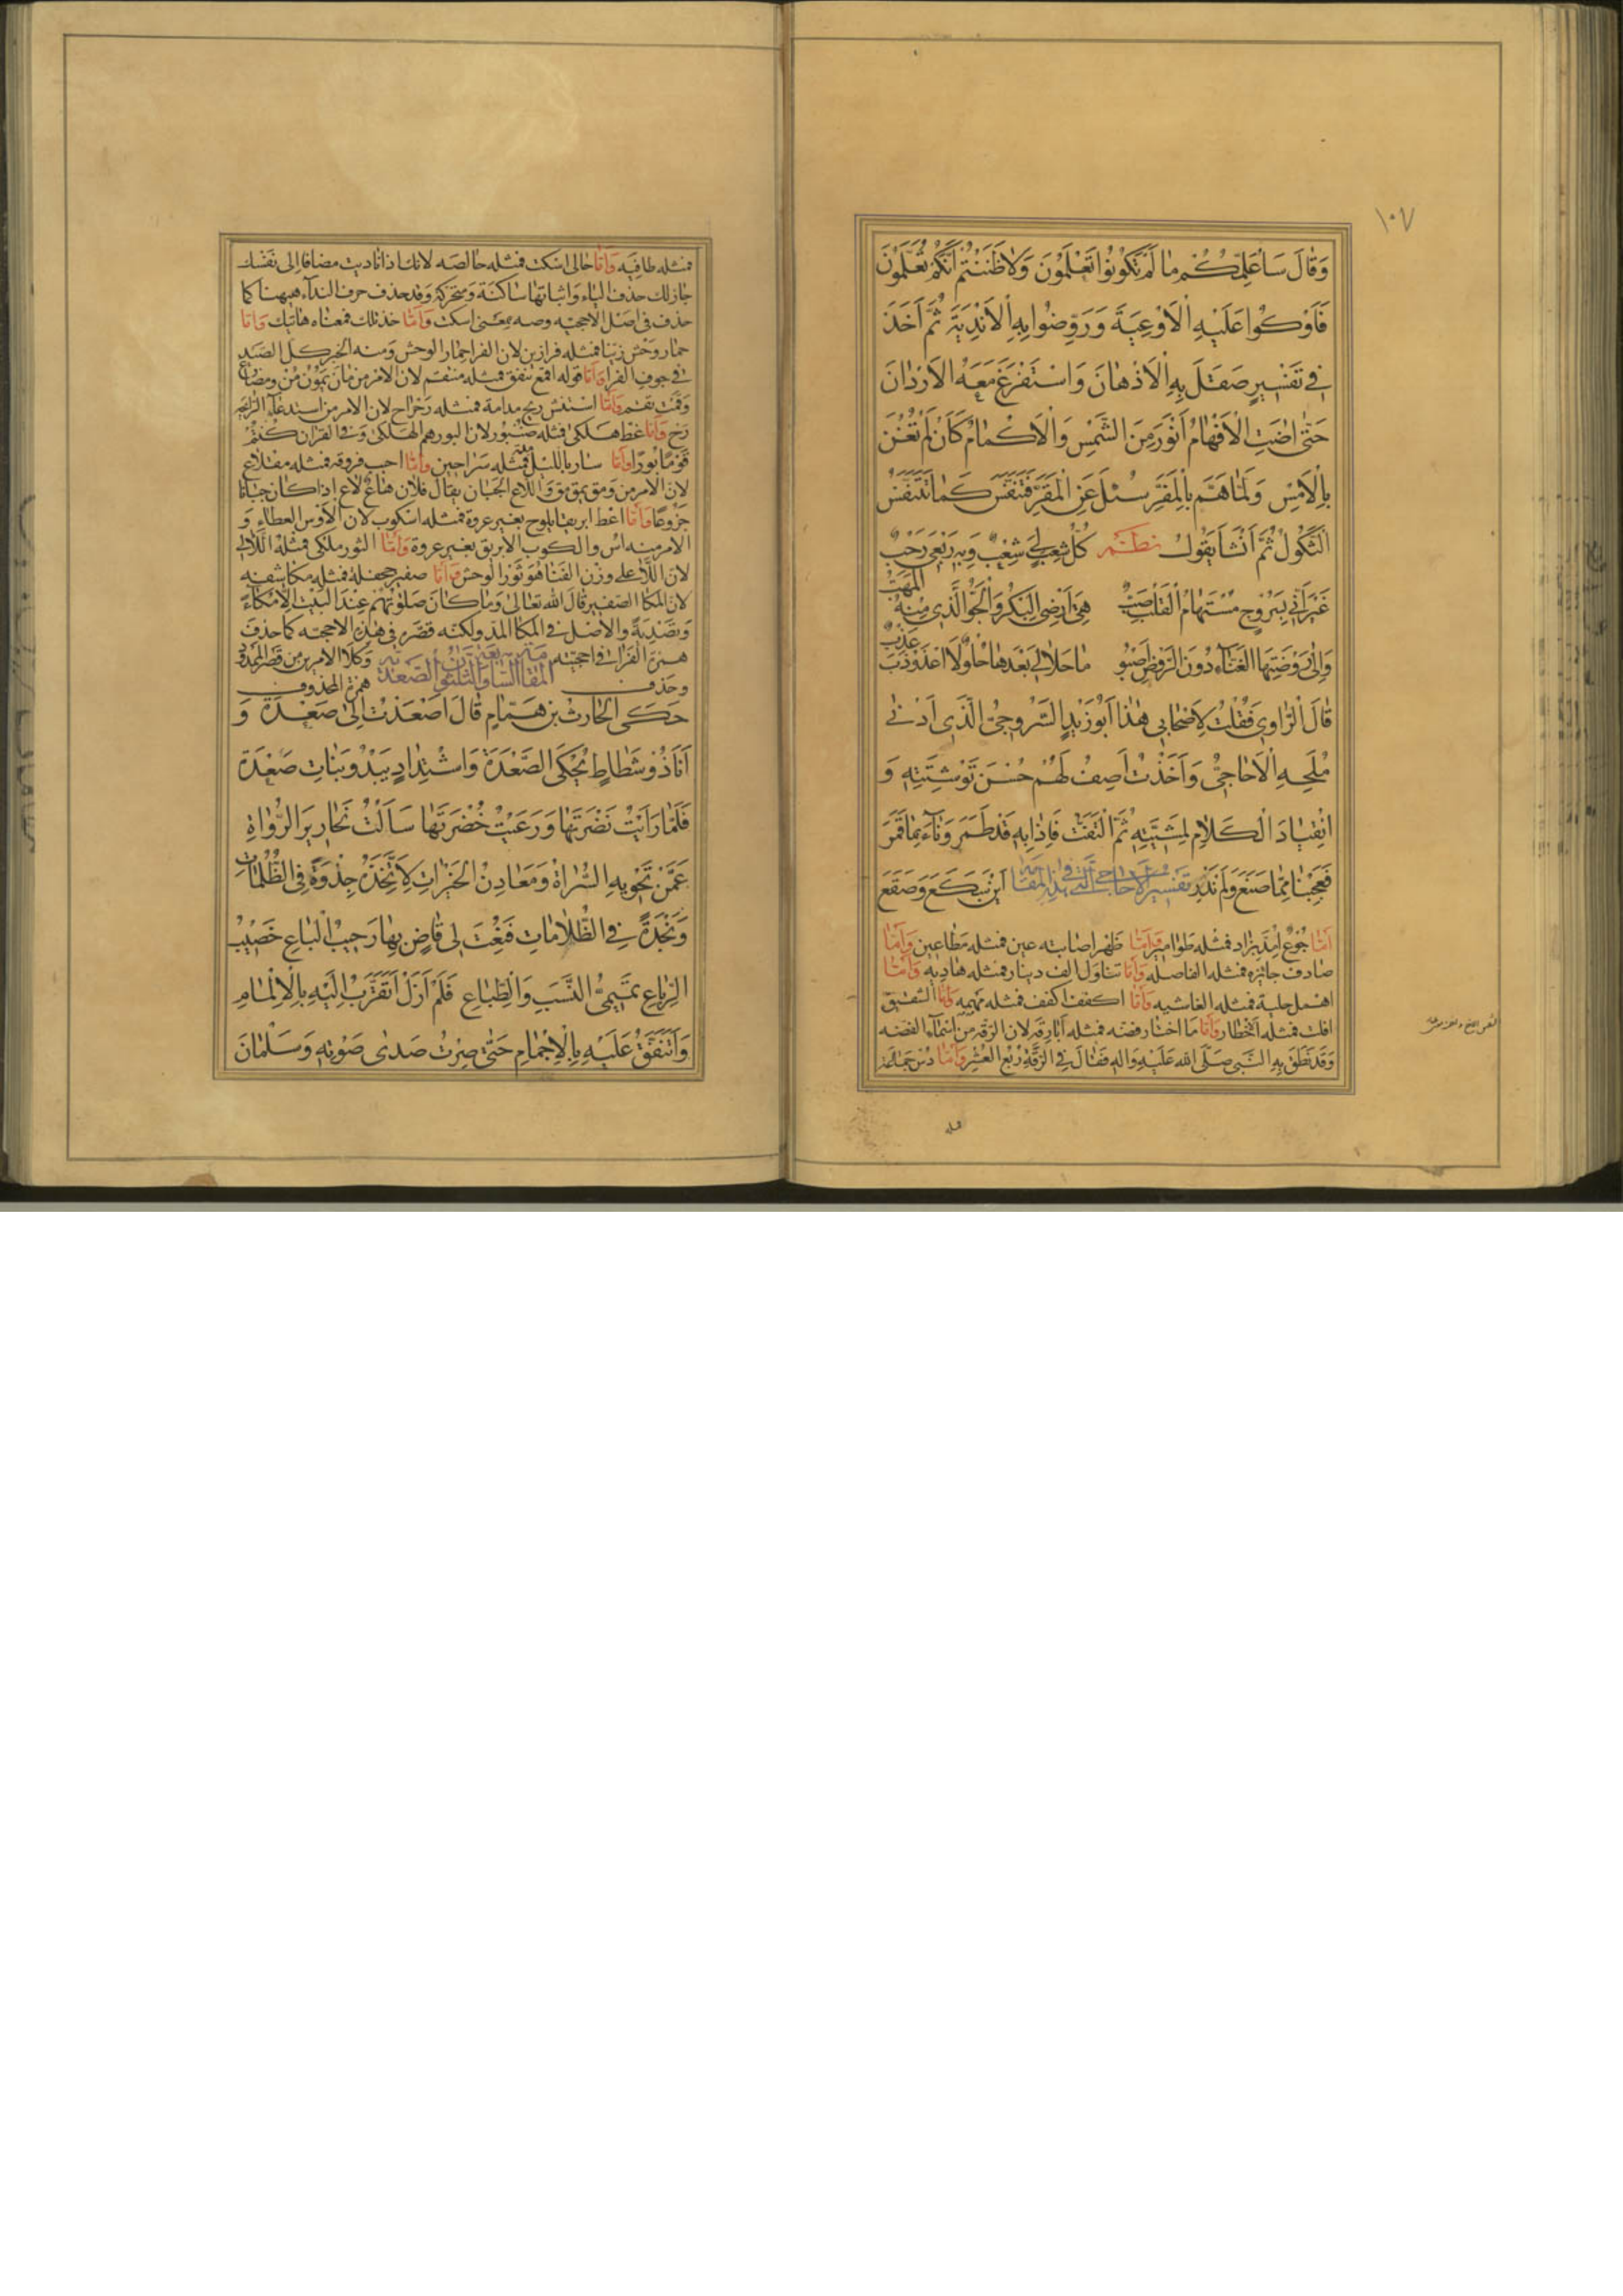 ١٠٧
وَقَالَ سَاُعَلِّمُكُمْ مَا لَمْ تَكُونُوا تَعْلَمُونَ وَلَا ظَنَنْتُمْ اَنَّكُمْ تُعَلَّمُونَ
فَاَوْكُوا عَلَيْهِ الْاَوْعِيَةَ وَرَوِّضُوا بِهِ الْاَنْدِيَةَ ثُمَّ اَخَذَ
فِي تَفْسِيرٍ صَقَلَ بِهِ الْاَذْهَانَ وَاسْتَفْرَغَ مَعَهُ الْاَرْدَانَ
حَتّٰى اضَتِ الْاَفْهَامُ اَنْوَرَ مِنَ الشَّمْسِ وَالْاَكْمَامُ كَاَنْ لَمْ تَغْنَ
بِالْاَمْسِ وَلَمَّا هَمَّ بِالْمَفَرِّ سُئِلَ عَنِ الْمَقَرِّ فَتَنَفَّسَ كَمَا تَتَنَفَّسُ
الثَّكُولُ ثُمَّ اَنْشَا يَقُولُ نظم كُلُّ شِعْبٍ لِي شِعْبٌ وَبِهِ رَبْعِي رَحْبٌ
غَيْرَ اَنِّي بِسَرُوجٍ مُسْتَهَامُ الْقَلْبِ صَبٌّ هِيَ اَرْضِي الْبِكْرُ وَالْجَوُّ الَّذِي مِنْهُ الْمَهَبُّ
وَاِلٰى رَوْضَتِهَا الْغَنَّاءِ دُونَ الرَّوْضِ اَصْبُو مَا حَلَا لِي بَعْدَهَا حُلْوٌ وَلَا اعْذَوْذَبَ عَذْبٌ
قَالَ الرَّاوِي فَقُلْتُ لِاَصْحَابِي هٰذَا اَبُو زَيْدٍ السَّرُوجِيُّ الَّذِي اَدْنٰى
مُلَحِهِ الْاَحَاجِيُّ وَاَخَذْتُ اَصِفُ لَهُمْ حُسْنَ تَوْشِيَتِهِ وَ
انْقِيَادَ الْكَلَامِ لِمَشِيَّتِهِ ثُمَّ الْتَفَتُّ فَاِذَا بِهِ قَدْ طَمَرَ وَنَاءَ بِمَا قَمَرَ
فَعَجِبْنَا مِمَّا صَنَعَ وَلَمْ نَدْرِ تفسير الاحاجي التي في هذه المقامة اَيْنَ سَكَعَ وَصَقَعَ
اَمَّا جُوعٌ اُمِدَّ بِزَاد فمثله طَوَامِير وَاَمَّا ظهر اصابته عين فمثله مَطَاعِين وَاَمَّا
صادف جائزه فمثله الفاصله وَاَمَّا تناول الف دينار فمثله هَادِيه وَاَمَّا
اهمل حلية فمثله الغاشيه وَاَمَّا اكفف اكفف فمثله مَهمه وَاَمَّا الشقيق
افلت فمثله اَخْطار وَاَمَّا مَا اختار فضته فمثله اَبَارِقه لان الرقه مِنْ اسْمَاءِ الفضه
وَقَدْ نَطَقَ بِهِ النَّبِي صَلَّى اللهُ عَلَيْهِ وَالِهِ فَقَالَ فِي الرِّقَةِ رُبْعُ الْعُشْرِ وَاَمَّا دُس جَمَاعَة
فمثله طافيه وَاَمَّا خالى اسكت فمثله خالصه لانك اذا ناديت مضافا الى نفسك
جاز لك حذف الياء واثباتها ساكنة ومتحركة وقد حذف حرف النداء ههنا كما
حذف فى اصل الاحجيه وصه بمعنى اسكت وَاَمَّا خذ تلك فمعناه هاتيك وَاَمَّا
حمار وحش زينا فمثله فرازين لان الفرا حمار الوحش ومنه الخبر كل الصيد
فى جوف الفرا وَاَمَّا قوله اقمع تنفق فمثله منتقم لان الامر من مان يمون مُن ومضارع
وَقَمْتَ تقم وَاَمَّا استنش ريح مدامة فمثله رَحْرَاح لان الامر من استدعاء الرائحه
رَحْ وَاَمَّا غط هلكى فمثله صنبور لان البور هم الهلكى وفى القران كنتم
قَوْمًا بُورًا وَاَمَّا سار بالليل فمثله سَرَاحين وَاَمَّا احبب فروقه فمثله مقلاع
لان الامر من ومق يمق مِق واللاع الجبان يقال فلان هاعٌ لاع اذا كان جبانا
جزوعًا وَاَمَّا اعط ابريقا يلوح بغير عروة فمثله اسكوب لان الاوس العطاء وَ
الامر منه اس والكوب الابريق بغير عروة وَاَمَّا الثور ملكى فمثله اللالى
لان اللا على وزن القنا هو ثور الوحش وَاَمَّا صفير جحفله فمثله مكاشفه
لان المكا الصفير قال الله تعالى وَمَا كَانَ صَلٰوتُهُمْ عِنْدَ الْبَيْتِ اِلَّا مُكَاءً
وَتَصْدِيَةً والاصل فى المكا المد ولكنه قصره فى هذه الاحجيه كما حذف
همزة الفرا فى احجيته وكلا الامرين من قصر الممدود
وحذف المقامة السابعة والثلثون الصعدية همزة المحذوف
حَكَى الْحَارِثُ بْنُ هَمَّامٍ قَالَ اَصْعَدْتُ اِلٰى صَعْدَةَ وَ
اَنَا ذُو شَطَاطٍ يَحْكِي الصَّعْدَةَ وَاشْتِدَادٍ يَبْدُو بَنَاتِ صَعْدَةَ
فَلَمَّا رَاَيْتُ نَضْرَتَهَا وَرَعَيْتُ خُضْرَتَهَا سَاَلْتُ نَحَارِيرَ الرُّوَاةِ
عَمَّنْ تَحْوِيهِ السُّرَاةُ وَمَعَادِنُ الْخَيْرَاتِ لِاَتَّخِذَهُ جِذْوَةً فِي الظُّلُمَاتِ
وَنَجْدَةً فِي الظُّلَامَاتِ فَنُعِتَ لِي قَاضٍ بِهَا رَحِيبُ الْبَاعِ خَصِيبُ
الرِّبَاعِ تَمِيمِيُّ النَّسَبِ وَالطِّبَاعِ فَلَمْ اَزَلْ اَتَقَرَّبُ اِلَيْهِ بِالْاِلْمَامِ
وَاَتَنَفَّقُ عَلَيْهِ بِالْاِجْمَامِ حَتّٰى صِرْتُ صَدٰى صَوْتِهِ وَسَلْمَانَ